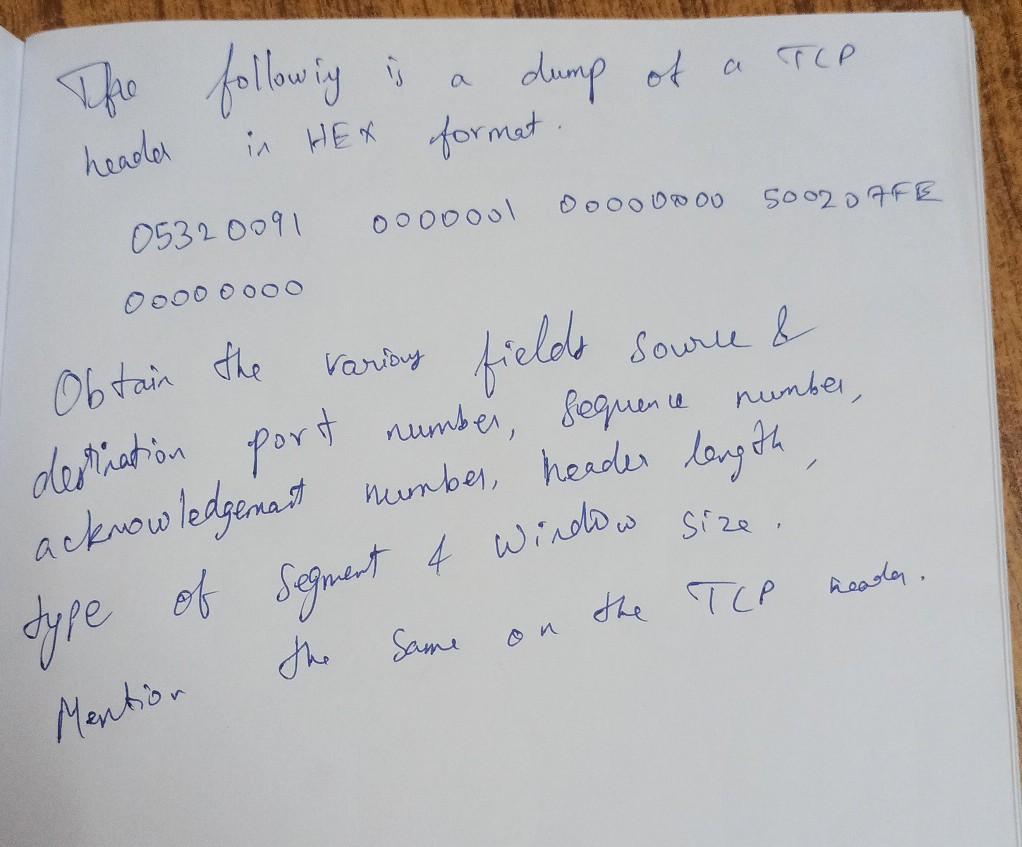 The followiy is a dump of a TCP
header in HEX format.
05320091 0000001 00000000 500207FE
00000000
Obtain the various fields source &
destination port number, sequence number,
acknowledgemant number, header length,
type of segment & window size.
Mention the same on the TCP header.